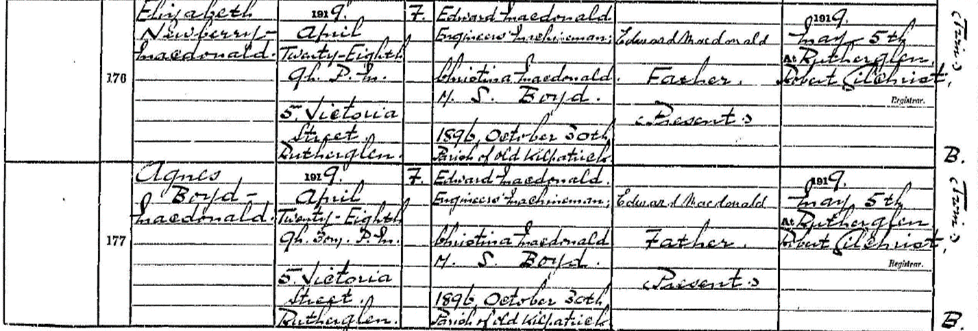 Elizabeth
Newberry-
Macdonald.
176
1919.
April
Twenty-Eighth
9h. P.M.
5. Victoria
Street
Rutherglen.
F.
Edward Macdonald
Engineers Machineman;
Christina Macdonald.
M. S. Boyd.
1896, October 30th
Parish of Old Kilpatrick
Edward Macdonald
Father.
(Present.)
1919.
May 5th
At Rutherglen
Robert Gilchrist,
Registrar.
(Twin.)
B.
Agnes
Boyd-
Macdonald.
177
1919.
April
Twenty-Eighth
9h. 30m. P.M.
5. Victoria
Street.
Rutherglen.
F.
Edward Macdonald.
Engineers Machineman;
Christina Macdonald
M. S. Boyd.
1896, October 30th
Parish of Old Kilpatrick
Edward Macdonald
Father.
(Present.)
1919.
May 5th
At Rutherglen
Robert Gilchrist,
Registrar.
(Twin.)
B.